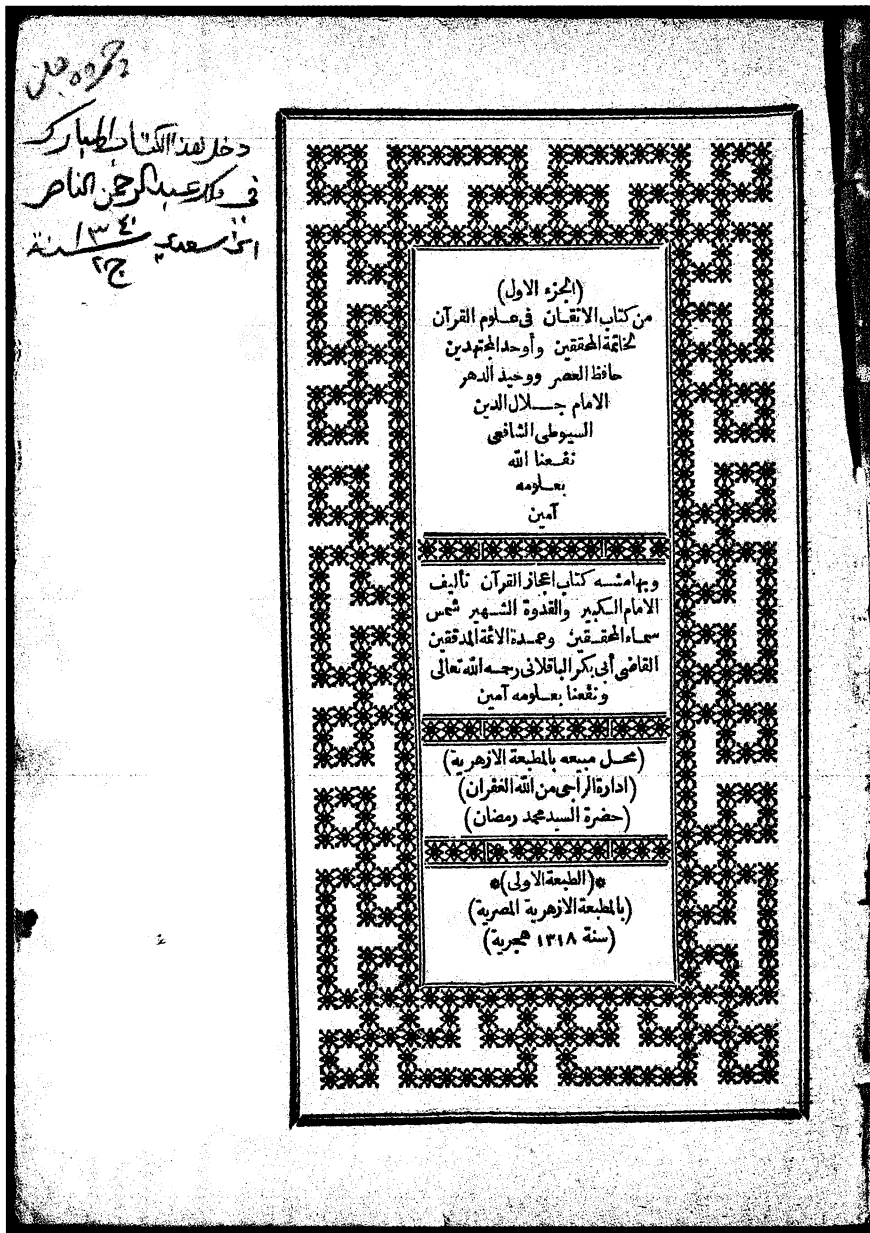 دخل هذا الكتاب المبارك
في ملك عبدالرحمن الناصر
ابن سعدي سنة ١٣٤٠
ج٢
(الجزء الاول)
من كتاب الاتقان فى علوم القرآن
لخاتمة المحققين وأوحد المجتهدين
حافظ العصر ووحيد الدهر
الامام جلال الدين
السيوطى الشافعى
نفعنا الله
بعلومه
آمين
وبهامشه كتاب اعجاز القرآن تأليف
الامام الكبير والقدوة الشهير شمس
سماء المحققين وعمدة الائمة المدققين
القاضى أبى بكر الباقلانى رحمه الله تعالى
ونفعنا بعلومه آمين
(محل مبيعه بالمطبعة الازهرية)
(ادارة الراجى من الله الغفران)
(حضرة السيد محمد رمضان)
*(الطبعة الاولى)*
(بالمطبعة الازهرية المصرية)
(سنة ١٣١٨ هجرية)